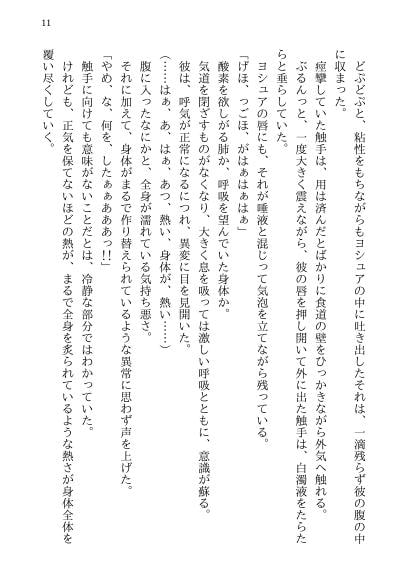 11
どぷどぷと、粘性をもちながらもヨシュアの中に吐き出したそれは、一滴残らず彼の腹の中
に収まった。
痙攣していた触手は、用は済んだとばかりに食道の壁をひっかきながら外気へ触れる。
ぶるんっと、一度大きく震えながら、彼の唇を押し開いて外に出た触手は、白濁液をたらた
らと垂らしていた。
ヨシュアの唇にも、それが唾液と混じって気泡を立てながら残っている。
「げほ、っ、ごほ、がはぁはぁはぁ」
酸素を欲しがる肺か、呼吸を望んでいた身体か。
気道を閉ざすものがなくなり、大きく息を吸っては激しい呼吸とともに、意識が蘇る。
彼は、呼気が正常になるにつれ、異変に目を見開いた。
(……はぁ、あ、はぁ、あつ、熱い、身体が、熱い……)
腹に入ったなにかと、全身が濡れている気持ち悪さ。
それに加えて、身体がまるで作り替えられているような異常に思わず声を上げた。
「やめ、な、何を、したぁぁあああっ!!」
触手に向けても意味がないことだとは、冷静な部分ではわかっていた。
けれども、正気を保てないほどの熱が、まるで全身を炙られているような熱さが身体全体を
覆い尽くしていく。